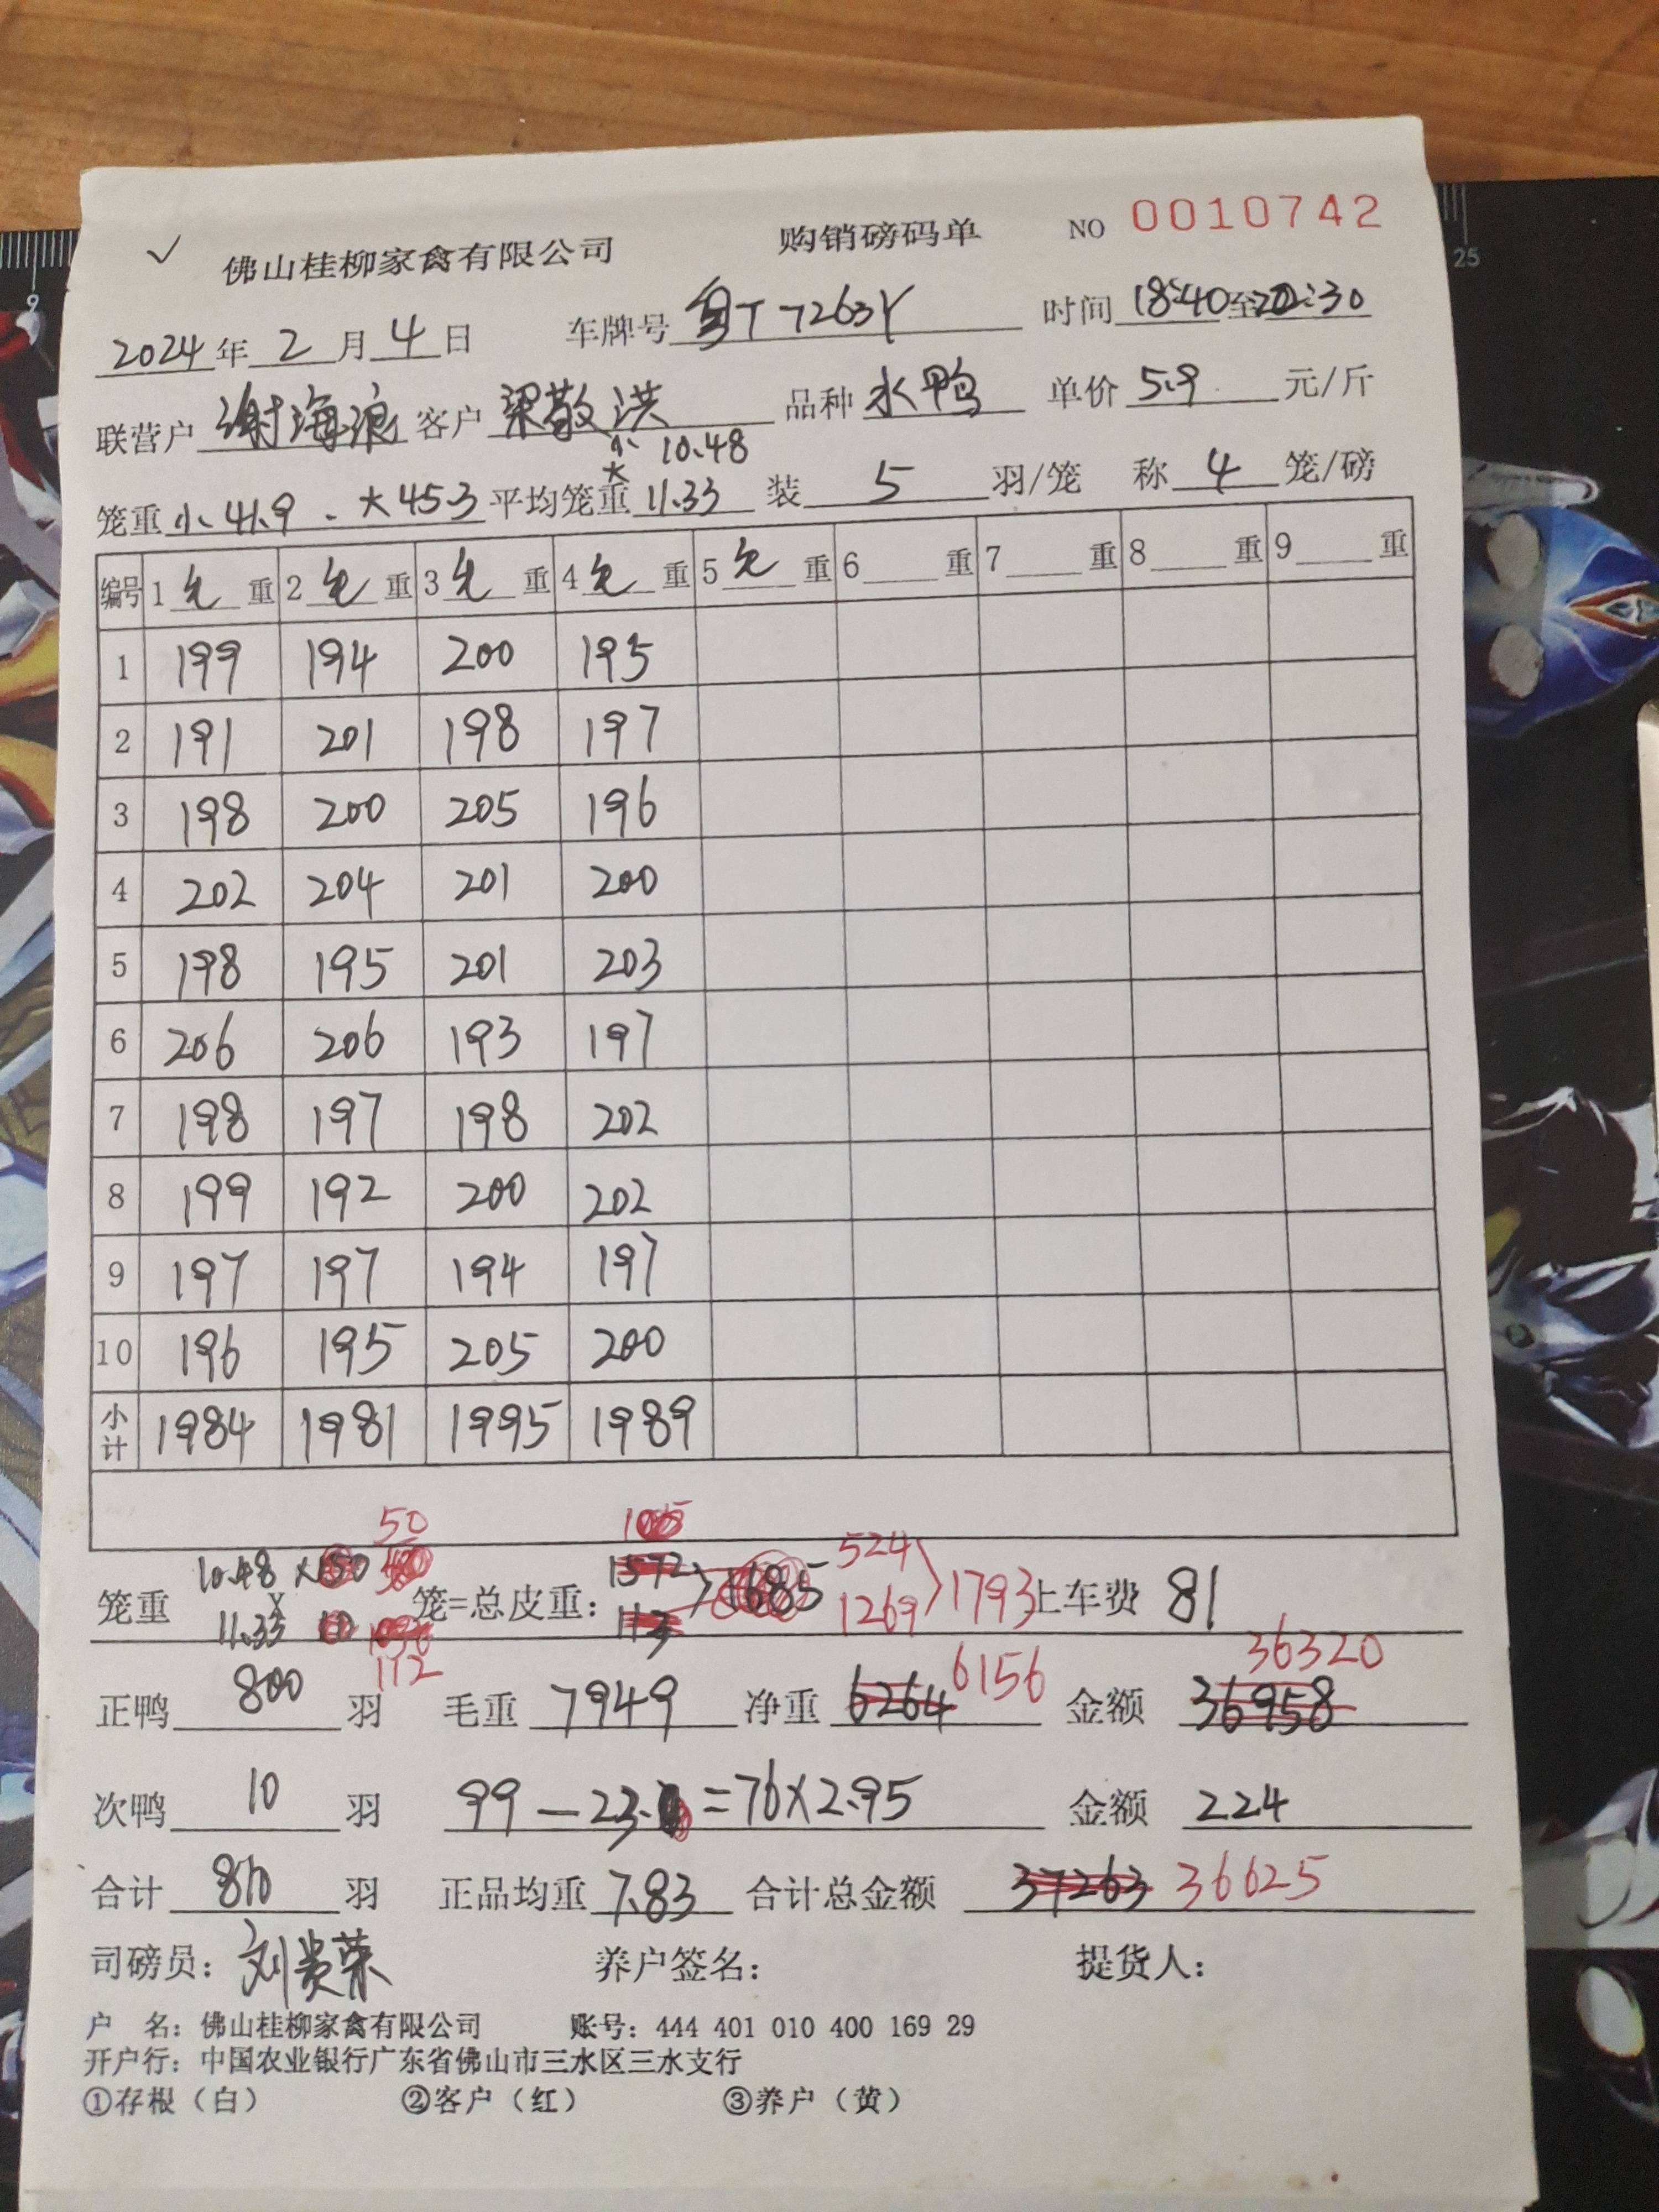 ✓ 佛山桂柳家禽有限公司 购销磅码单 NO 0010742
2024年2月4日 车牌号 粤T7263Y 时间 18:40至20:30
联营户 谢海浪 客户 梁敬洪 品种 水鸭 单价 5.9 元/斤
小 10.48
笼重 小41.9 . 大45.3 平均笼重 大 11.33 装 5 羽/笼 称 4 笼/磅
编号 1 毛 重 2 毛 重 3 毛 重 4 毛 重 5 毛 重 6 重 7 重 8 重 9 重
1 199 194 200 195
2 191 201 198 197
3 198 200 205 196
4 202 204 201 200
5 198 195 201 203
6 206 206 193 197
7 198 197 198 202
8 199 192 200 202
9 197 197 194 197
10 196 195 205 200
小计 1984 1981 1995 1989
50
10.48 × 1572 524
笼重 笼=总皮重: 1685 1793 上车费 81
11.33 113 1269
112 6156 36320
正鸭 800 羽 毛重 7949 净重 6264 金额 36958
次鸭 10 羽 99-23 =76×2.95 金额 224
合计 810 羽 正品均重 7.83 合计总金额 37263 36625
司磅员: 刘贵荣 养户签名: 提货人:
户 名: 佛山桂柳家禽有限公司 账号: 444 401 010 400 169 29
开户行: 中国农业银行广东省佛山市三水区三水支行
①存根（白） ②客户（红） ③养户（黄）
9 25